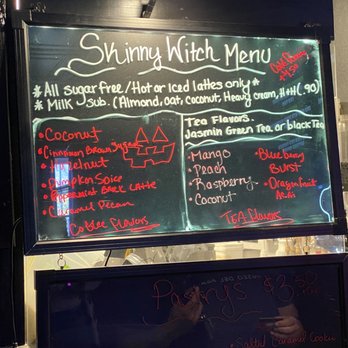 Skinny Witch Menu
* All sugar free / Hot or Iced lattes only *
* Milk sub. (Almond, oat, coconut, Heavy cream, H+H (.90)
• Coconut
• Cinnamon Brown Sugar
• Hazelnut
• Pumpkin Spice
• Peppermint Bark Latte
• Caramel Pecan
Coffee Flavors
Tea Flavors.
Jasmin Green Tea or black Tea
• Mango
• Peach
• Raspberry
• Coconut
• Blueberry
Burst
• Dragonfruit
TEA Flavors
Pastry's $3.50
• Salted Caramel Cookie